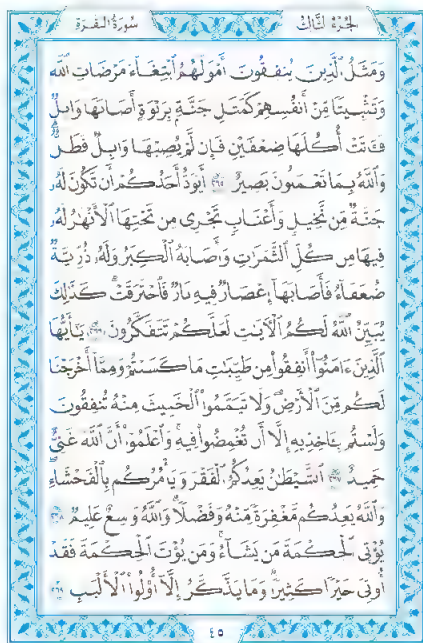 الجزء الثالث سورة البقرة
وَمَثَلُ ٱلَّذِينَ يُنفِقُونَ أَمْوَٰلَهُمُ ٱبْتِغَآءَ مَرْضَاتِ ٱللَّهِ
وَتَثْبِيتًا مِّنْ أَنفُسِهِمْ كَمَثَلِ جَنَّةٍۭ بِرَبْوَةٍ أَصَابَهَا وَابِلٌ
فَـَٔاتَتْ أُكُلَهَا ضِعْفَيْنِ فَإِن لَّمْ يُصِبْهَا وَابِلٌ فَطَلٌّ
وَٱللَّهُ بِمَا تَعْمَلُونَ بَصِيرٌ ٢٦٥ أَيَوَدُّ أَحَدُكُمْ أَن تَكُونَ لَهُۥ
جَنَّةٌ مِّن نَّخِيلٍ وَأَعْنَابٍ تَجْرِى مِن تَحْتِهَا ٱلْأَنْهَٰرُ لَهُۥ
فِيهَا مِن كُلِّ ٱلثَّمَرَٰتِ وَأَصَابَهُ ٱلْكِبَرُ وَلَهُۥ ذُرِّيَّةٌ
ضُعَفَآءُ فَأَصَابَهَآ إِعْصَارٌ فِيهِ نَارٌ فَٱحْتَرَقَتْ ۗ كَذَٰلِكَ
يُبَيِّنُ ٱللَّهُ لَكُمُ ٱلْءَايَٰتِ لَعَلَّكُمْ تَتَفَكَّرُونَ ٢٦٦ يَٰٓأَيُّهَا
ٱلَّذِينَ ءَامَنُوٓا۟ أَنفِقُوا۟ مِن طَيِّبَٰتِ مَا كَسَبْتُمْ وَمِمَّآ أَخْرَجْنَا
لَكُم مِّنَ ٱلْأَرْضِ ۖ وَلَا تَيَمَّمُوا۟ ٱلْخَبِيثَ مِنْهُ تُنفِقُونَ
وَلَسْتُم بِـَٔاخِذِيهِ إِلَّآ أَن تُغْمِضُوا۟ فِيهِ ۚ وَٱعْلَمُوٓا۟ أَنَّ ٱللَّهَ غَنِىٌّ
حَمِيدٌ ٢٦٧ ٱلشَّيْطَٰنُ يَعِدُكُمُ ٱلْفَقْرَ وَيَأْمُرُكُم بِٱلْفَحْشَآءِ ۖ
وَٱللَّهُ يَعِدُكُم مَّغْفِرَةً مِّنْهُ وَفَضْلًا ۗ وَٱللَّهُ وَٰسِعٌ عَلِيمٌ ٢٦٨
يُؤْتِى ٱلْحِكْمَةَ مَن يَشَآءُ ۚ وَمَن يُؤْتَ ٱلْحِكْمَةَ فَقَدْ
أُوتِىَ خَيْرًا كَثِيرًا ۗ وَمَا يَذَّكَّرُ إِلَّآ أُو۟لُوا۟ ٱلْأَلْبَٰبِ ٢٦٩
٤٥